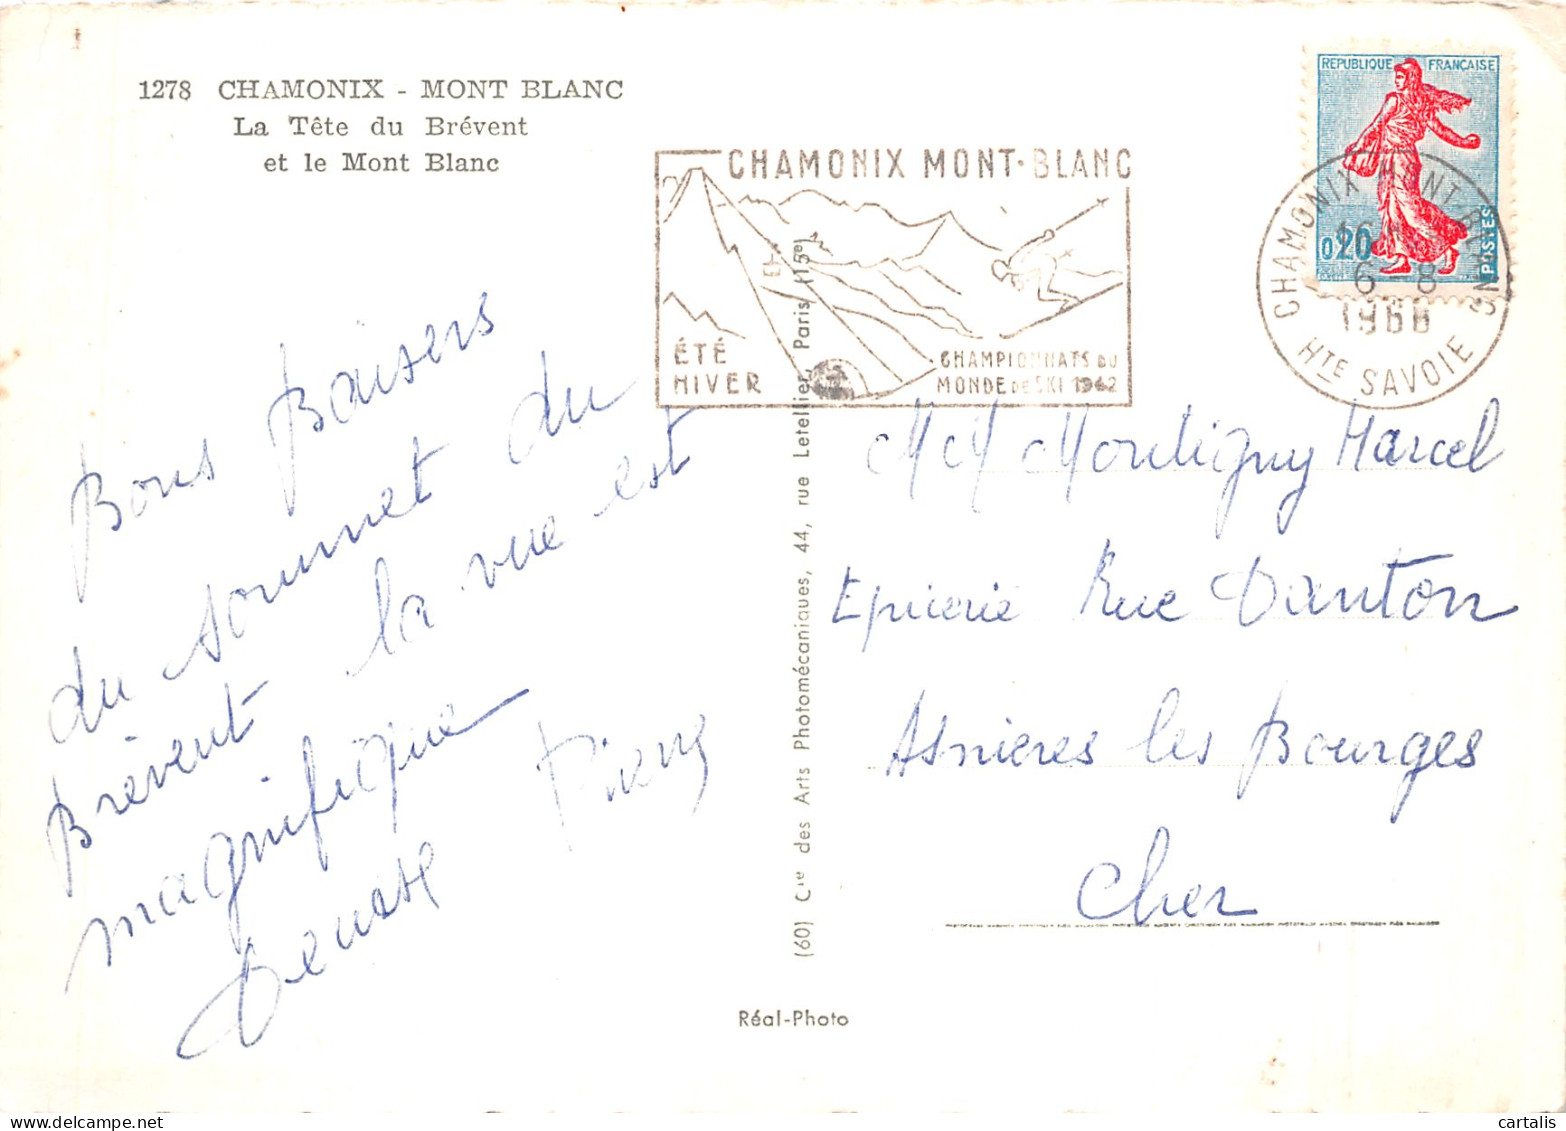 1278 CHAMONIX - MONT BLANC
La Tête du Brévent
et le Mont Blanc
CHAMONIX MONT-BLANC
ÉTÉ
HIVER
CHAMPIONNATS DU
MONDE DE SKI 1962
REPUBLIQUE FRANÇAISE
0,20
POSTES
CHAMONIX-MONT-BLANC
6-8
HTE SAVOIE
Bons Baisers
du sommet du
Brévent la vue est
magnifique
Denise
(60) Cie des Arts Photomécaniques, 44, rue Letellier, Paris (15e)
Réal-Photo
M M Montigny Marcel
Epicerie Rue Danton
Asnieres les Bourges
Cher
cartalis